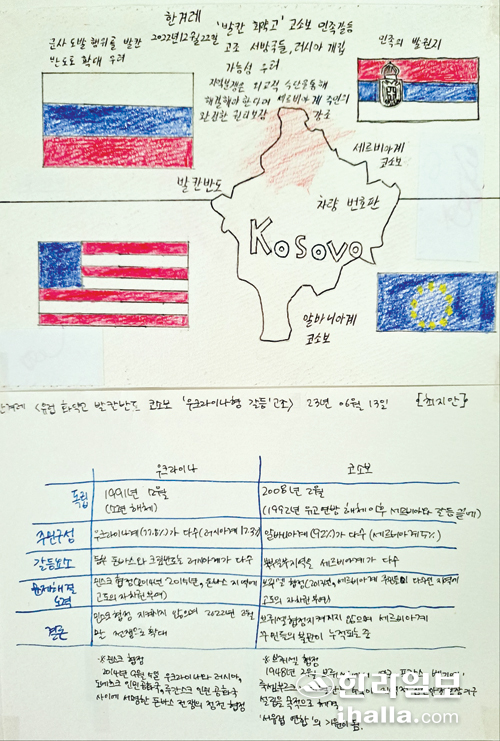 한겨레 '발칸 화약고' 코소보 민족갈등
2022년 12월 22일
고조 서방국들, 러시아 개입
가능성 우려
군사 도발 행위를 발칸
반도로 확대 우려
민족의 발원지
지역분쟁은 외교적 수단을 통해
해결해야 한다며 세르비아계 주민의
완전한 권리보장 강조
세르비아계
코소보
발칸반도
차량 번호판
Kosovo
알바니아계
코소보
<유럽 화약고 발칸반도 코소보 '우크라이나형 갈등' 고조> 23년 06월 13일 [최지안]
우크라이나 코소보
독립 1991년 12월 2008년 2월
(소련 해체) (1992년 유고연방 해체 이후 세르비아와 갈등 끝에)
주민구성 우크라이나계(77.8%)가 다수(러시아계 17.3%) 알바니아계(92%)가 다수 (세르비아계 5%)
갈등요소 동부 돈바스와 크림반도는 러시아계가 다수 북부지역은 세르비아계가 다수
문제해결 민스크 협정(2014년, 2015년, 돈바스 지역에 브뤼셀 협정(2013년, 세르비아계 주민들이 다수인 지역에
노력 고도의 자치권 부여) 고도의 자치권 부여)
결론 민스크협정 지켜지지 않으며 2022년 2월 브뤼셀협정 지켜지지 않으며 세르비아계
전쟁으로 확대 주민들의 불만이 누적되는 중
※민스크 협정 ※브뤼셀 협정
2014년 9월 5일 우크라이나와 러시아, 1948년
도네츠크 인민공화국, 루간스크 인민 공화국
사이에 서명한 돈바스 전쟁의 정전 협정 설립을 목적으로 체결
'서유럽 연합'의 기원이 됨.
한라일보
ihalla.com